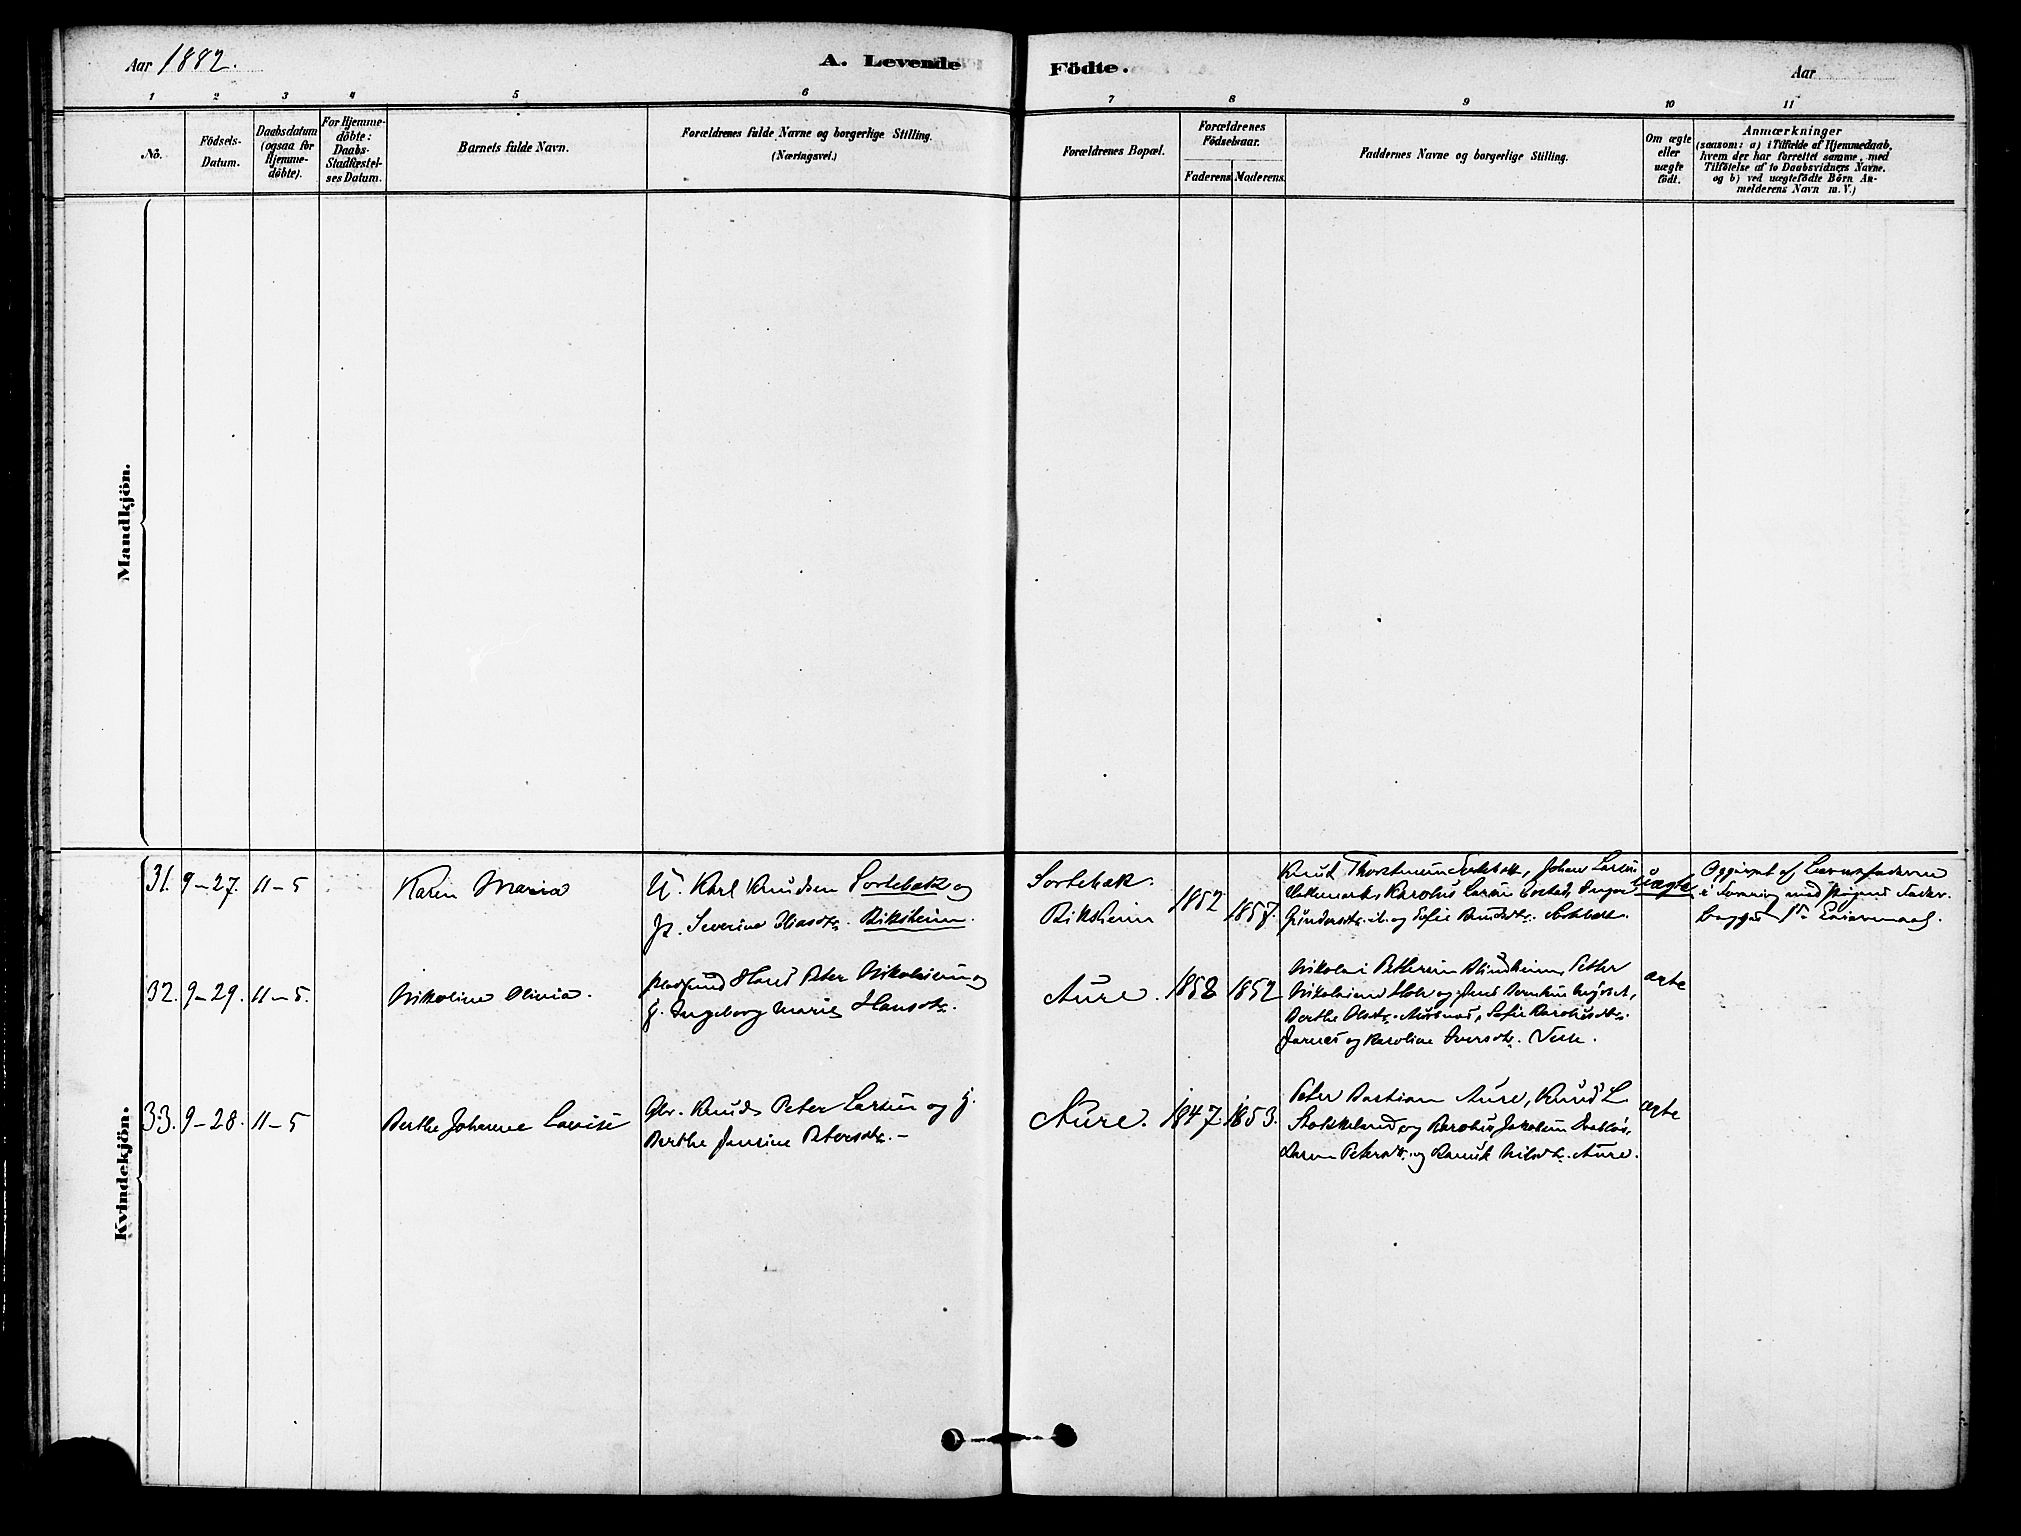 Aar 1882.
A. Levende Födte.
Aar
1 2 3 4 5 6 7 8 9 10 11
No.
Födsels-
Datum.
Daabsdatum
(ogsaa for
Hjemme-
döbte).
For Hjemme-
döbte:
Daabs-
Stadfæstel-
ses Datum.
Barnets fulde Navn.
Forældrenes fulde Navne og borgerlige Stilling.
(Næringsvei.)
Forældrenes Bopæl.
Forældrenes
Födselsaar.
Faderens
Moderens.
Faddernes Navne og borgerlige Stilling.
Om ægte
eller
uægte
födt.
Anmærkninger
(saasom: a) i Tilfælde af Hjemmedaab,
hvem der har forrettet samme, med
Tilföielse af to Daabsvidners Navne.
og b) ved uægtefödte Börn An-
melderens Navn m. V.)
Mandkjön.
Kvindekjön.
31. 9-27. 11-5
Karen Maria
U. Karl Knudsen Sortebak og
P. Severine Eliasdtr. Riksheim.
Sortebak.
Riksheim
1852
1857.
Knut Thorsteinsen Johan Larsen
Karolus Larsen
og Sofie Knudsdtr.
uægte
Opgivet af Barnefaderen
32. 9-29. 11-5.
Nikoline Olivia.
Hans Peter Nikolaisen og
H. Ingeborg Marie Hansdtr.
Aure.
1858
1852
Nikolai Blindheim, Petter
Nikolaisen og Jens
Berthe Olsdtr. Sofie Karolusdtr.
og Karoline Iversdtr.
ægte
33. 9-28. 11-5
Berthe Johanne Lovise
Gbr. Knud Peter Larsen og H.
Berthe Jensine Petersdtr.
Aure.
1847.
1853.
Peter Bastian Aure, Knud L.
og Karolus Jakobsen
Petersdtr. og Nilsdtr. Aure.
ægte